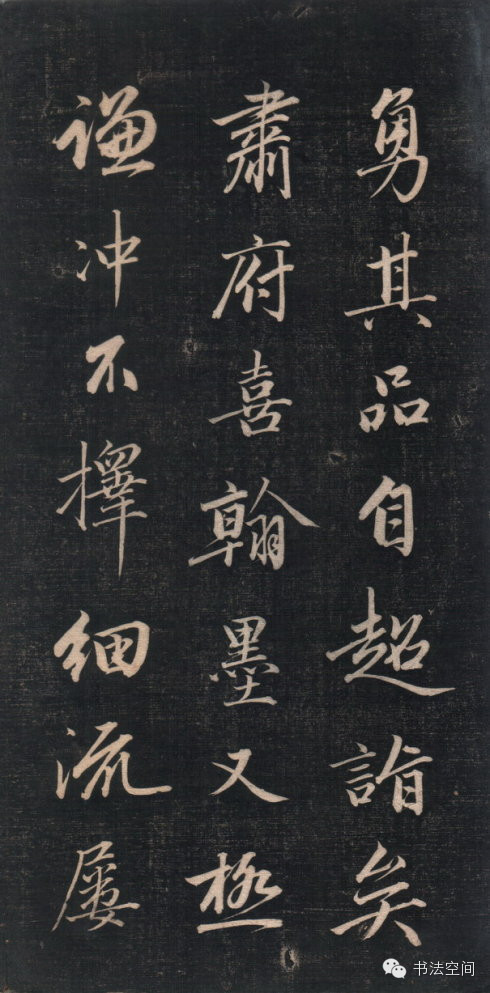 勇其品自超詣矣
肅府喜翰墨又極
謙冲不擇細流屢
书法空间